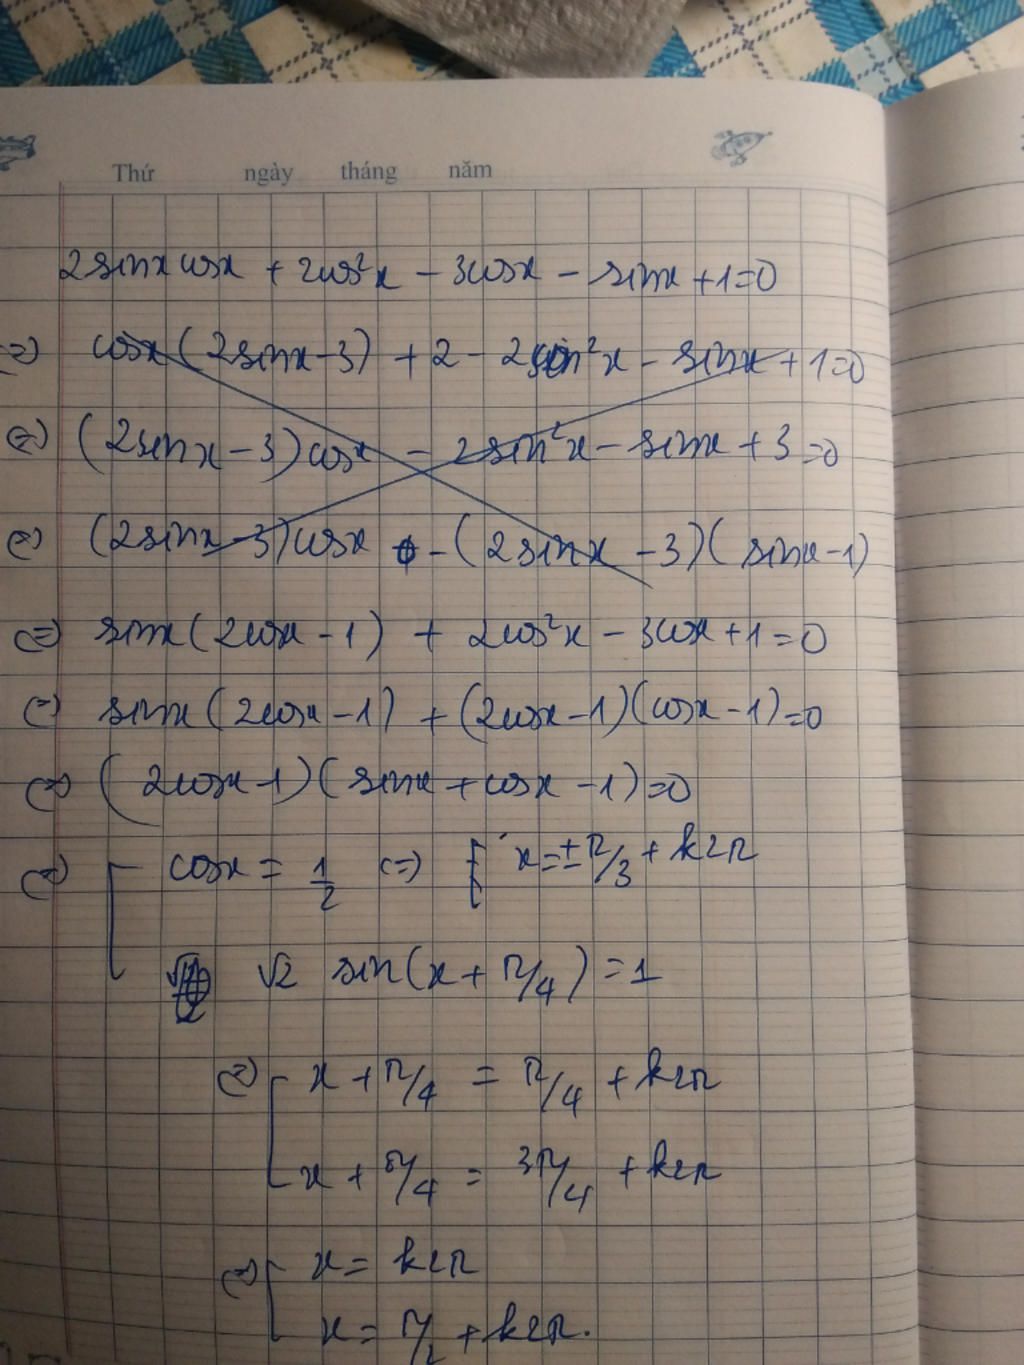 Thứ ngày tháng năm
2sinx cosx + 2cos²x - 3cosx - sinx + 1 = 0
(=) cosx(2sinx - 3) + 2 - 2sin²x - sinx + 1 = 0
(=) (2sinx - 3)cosx - 2sin²x - sinx + 3 = 0
(=) (2sinx - 3)cosx - (2sinx - 3)(sinx - 1)
(=) sinx(2cosx - 1) + 2cos²x - 3cosx + 1 = 0
(=) sinx(2cosx - 1) + (2cosx - 1)(cosx - 1) = 0
(=) (2cosx - 1)(sinx + cosx - 1) = 0
(=) [ cosx = 1/2 (=) [ x = ± π/3 + k2π
√2 sin(x + π/4) = 1
(=) [ x + π/4 = π/4 + k2π
x + π/4 = 3π/4 + k2π
(=) [ x = k2π
x = π/2 + k2π.